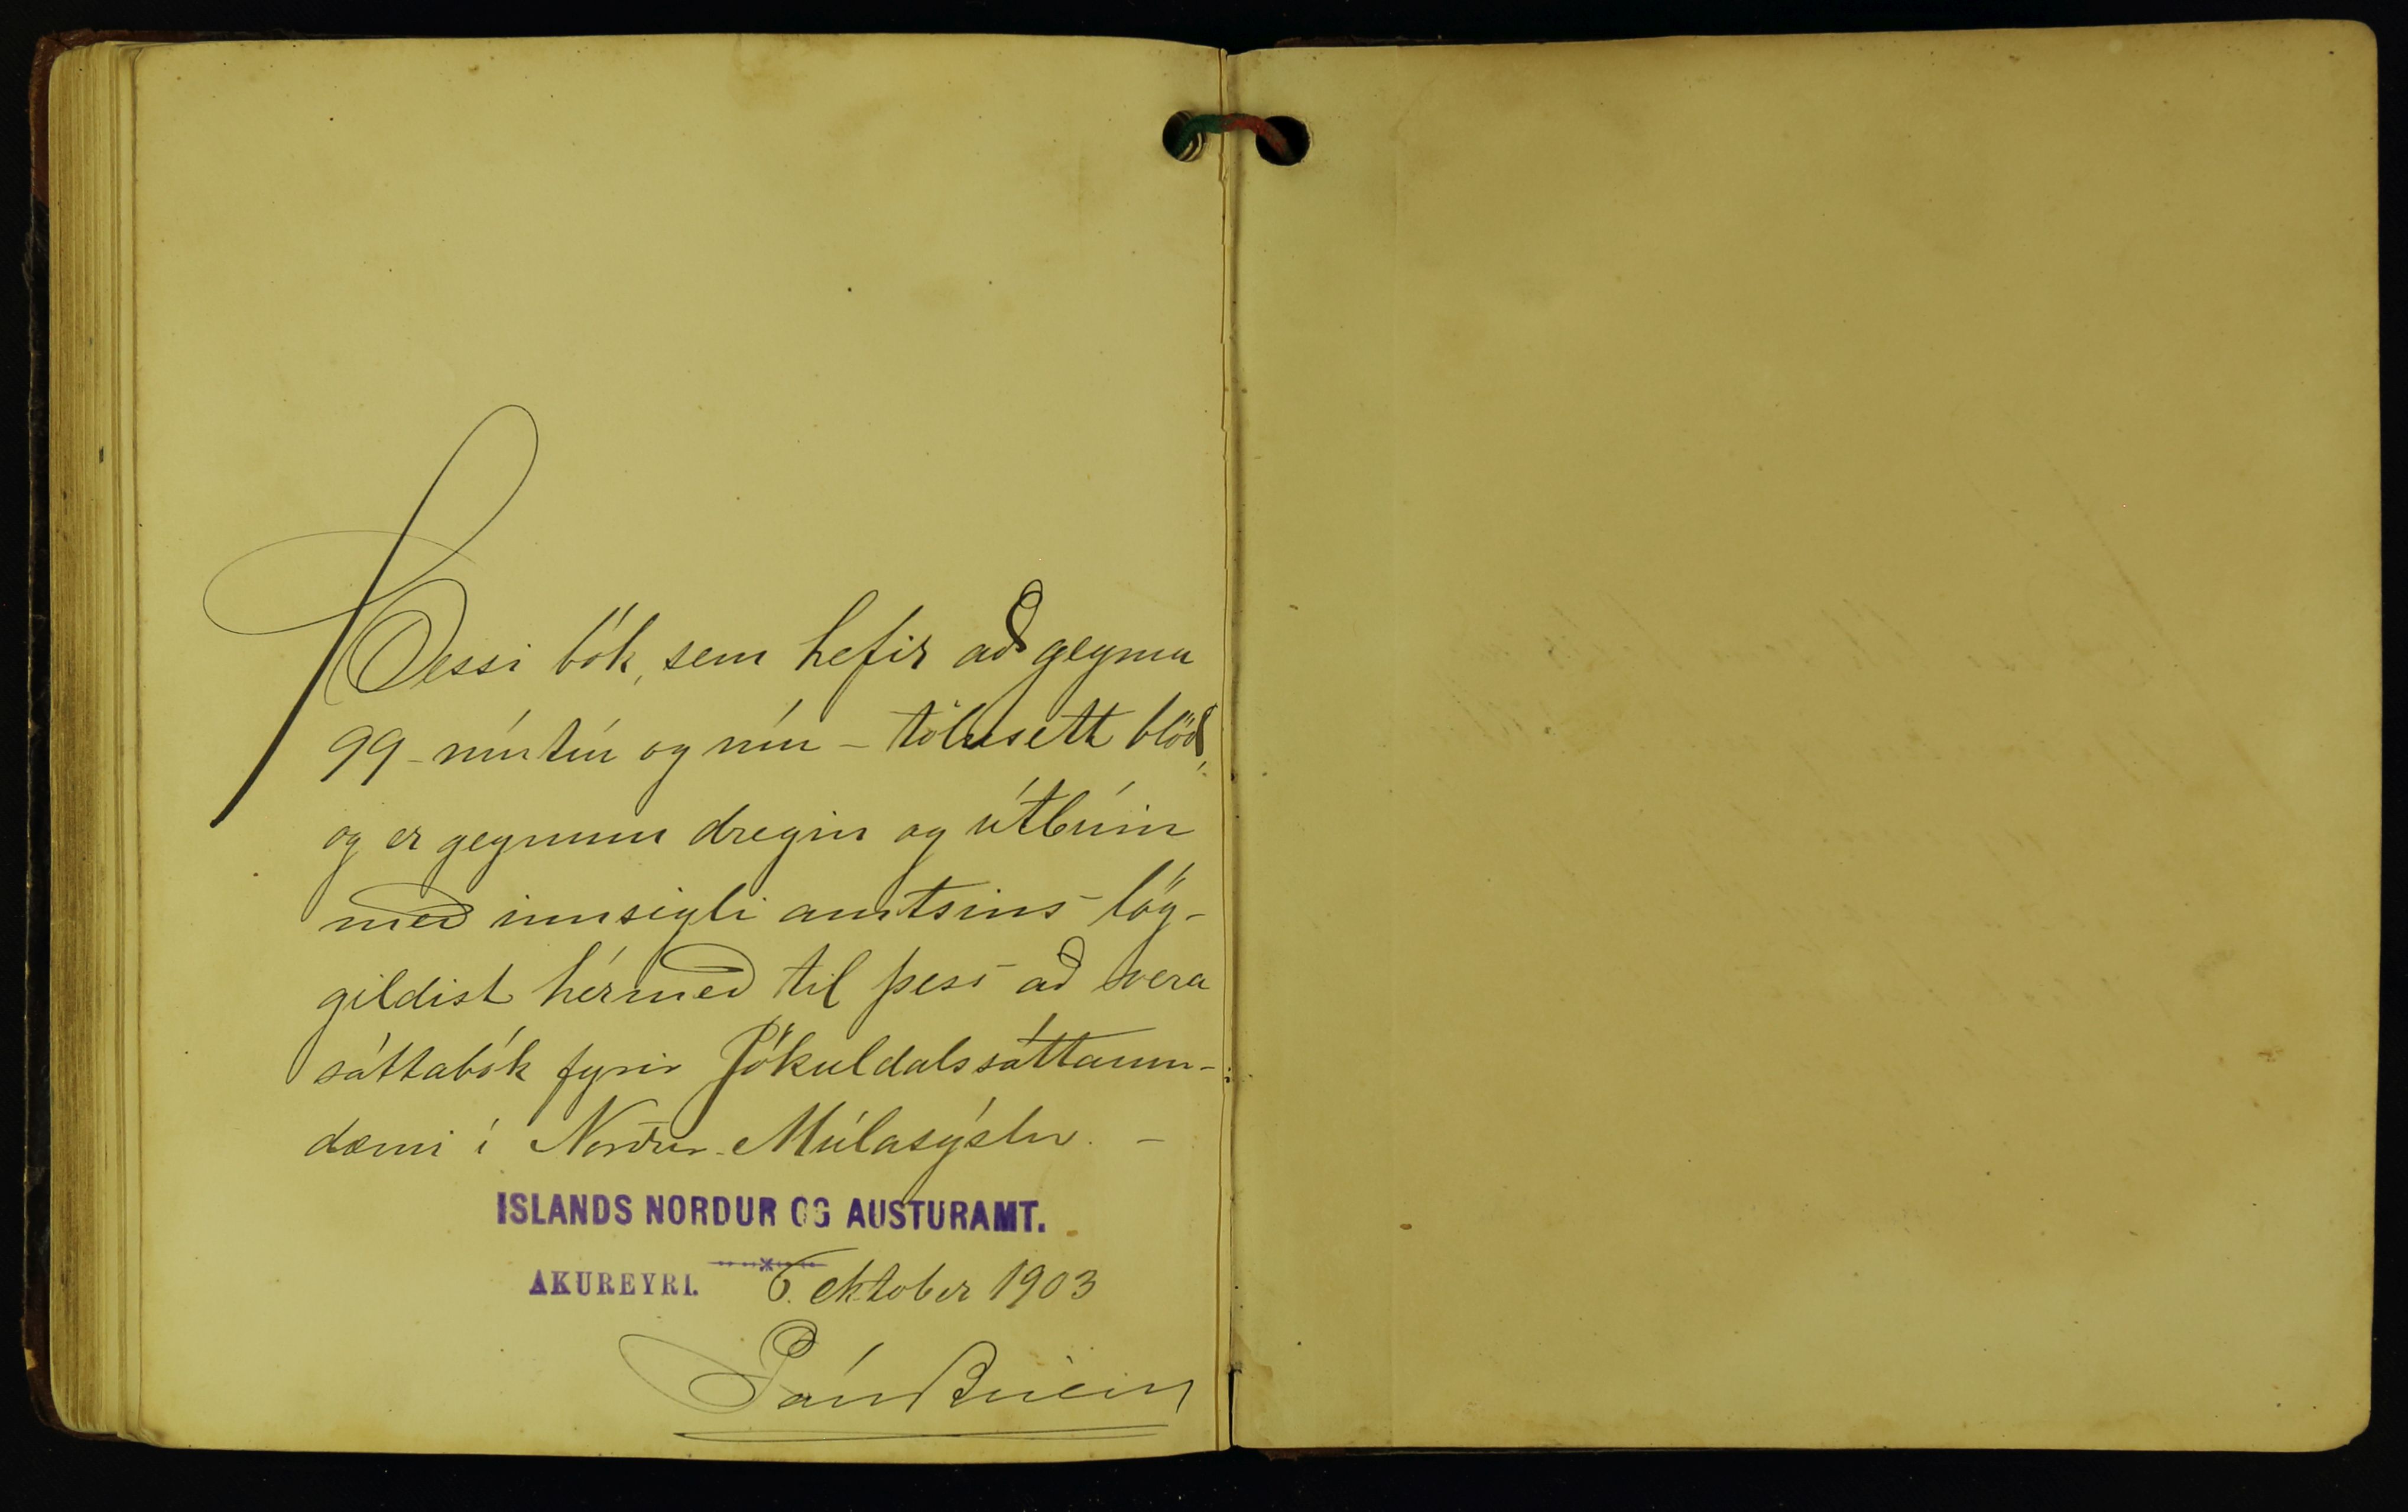 Þessi bók, sem hefir að geyma
99 - níutíu og níu - tölusett blöð,
og er gegnum dregin og útbúin
með innsigli amtsins lög-
gildist hérmeð til þess að vera
sáttabók fyrir Jökuldalssáttaum-
dæmi í Norður-Múlasýslu. -
ISLANDS NORDUR OG AUSTURAMT.
AKUREYRI. 6. október 1903
Páll Briem